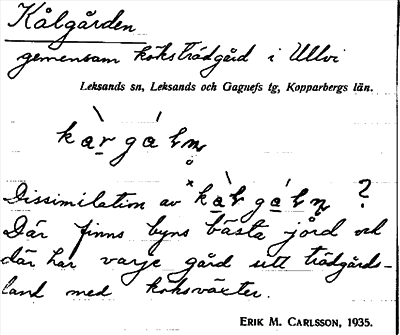 Kålgården
gemensam köksträdgård i Ullvi
Leksands sn, Leksands och Gagnefs tg, Kopparbergs län.
Dissimilation av ?
Där finns byns bästa jord och
där har varje gård ett trädgårds-
land med köksväxter.
ERIK M. CARLSSON, 1935.